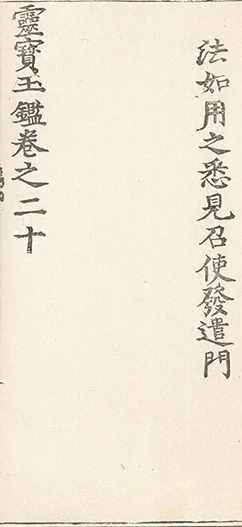 法如用之悉見召使發遣門
靈寶玉鑑卷之二十